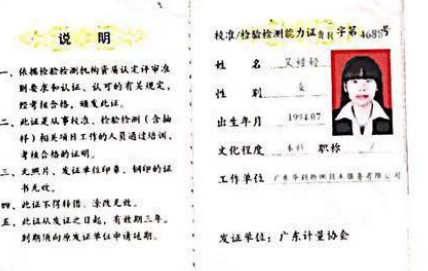 说 明
一、依据检验检测机构资质认定评审准
则要求和认证、认可的有关规定,
经考核合格,颁发此证。
二、此证是从事校准、检验检测(含抽
样)相关项目工作的人员通过培训、
考核合格的证明。
三、无照片、发证单位印章、钢印的证
书无效。
四、此证不得转借、涂改无效。
五、此证从发证之日起,有效期三年。
到期须向原发证单位申请延期。
校准/检验检测能力证 字第4688号
姓 名
性 别 女
出生年月 199407
文化程度 本科 职称 /
工作单位 广东 技术服务有限公司
发证单位:广东计量协会